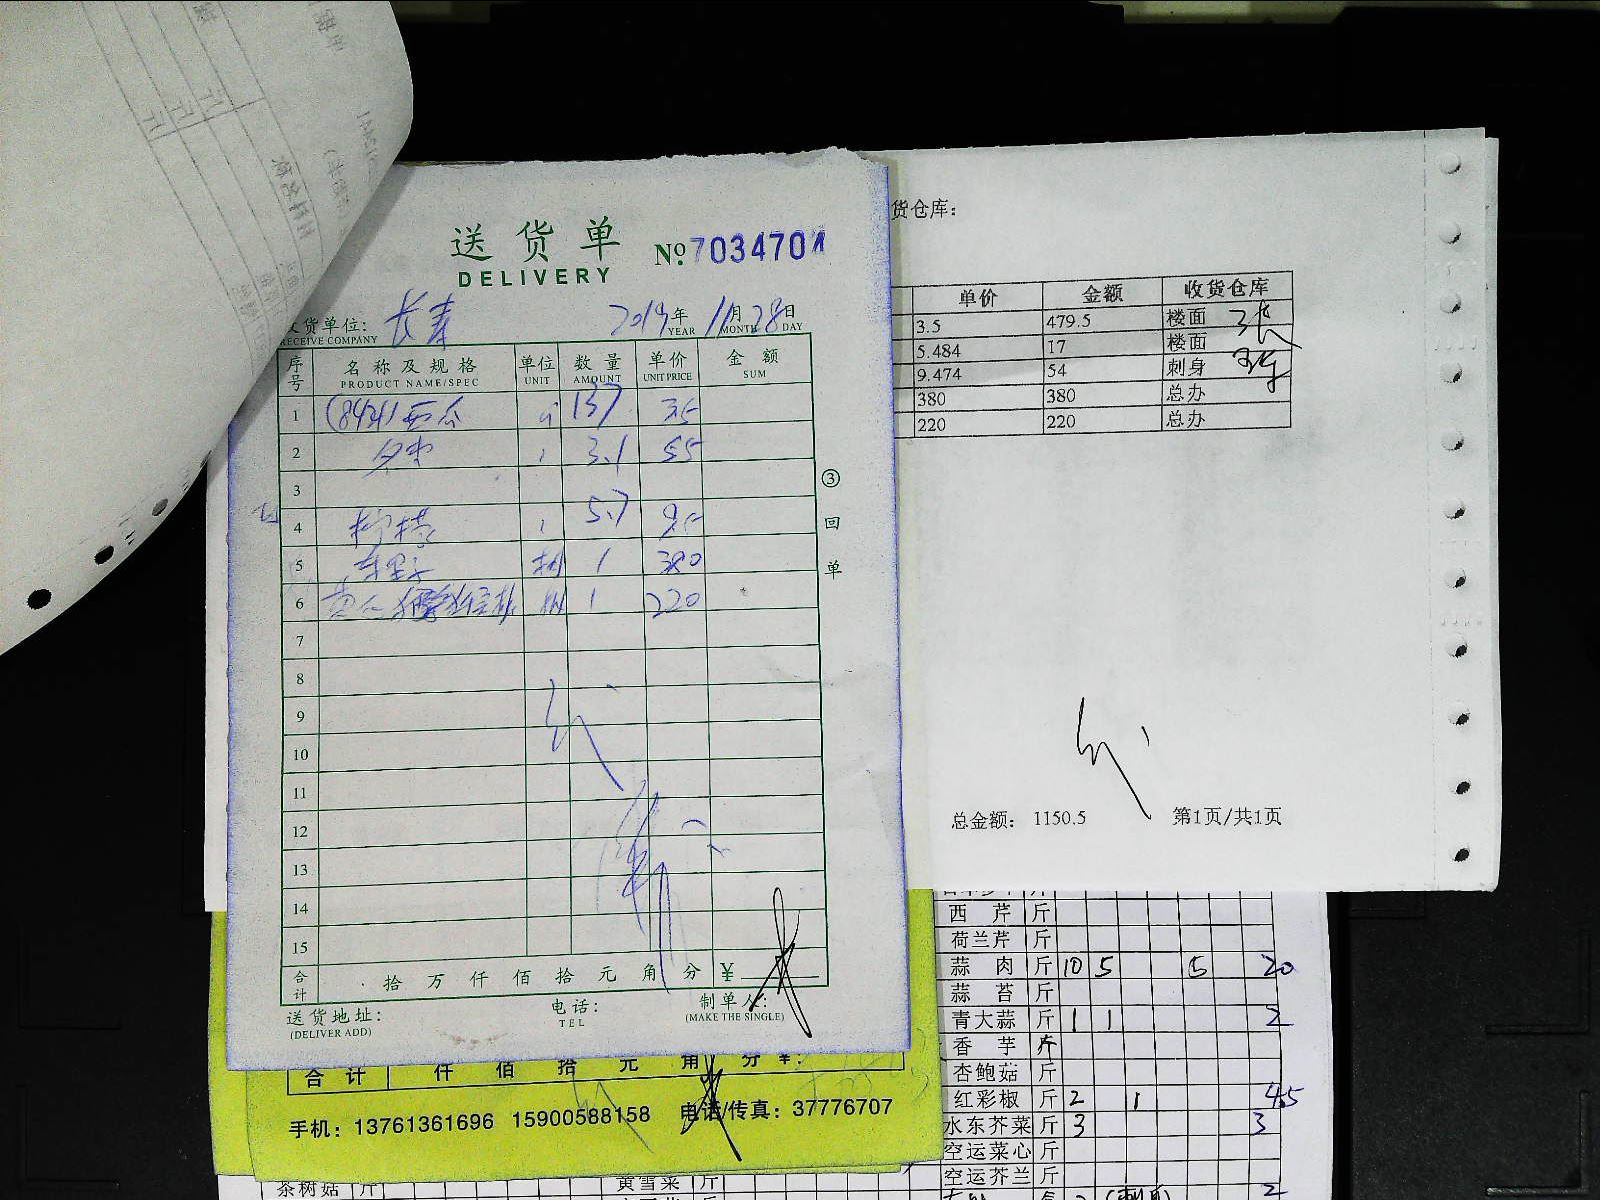 送货单
DELIVERY
№ 7034701
货仓库：
货单位： 长寿
2019年 11月 28日
RECEIVE COMPANY
YEAR MONTH DAY
序号 名称及规格 单位 数量 单价 金额
PRODUCT NAME/SPEC UNIT AMOUNT UNIT PRICE SUM
1 (8424)西瓜 斤 137 3.5
2 3.1 5.5
3
4 柠檬 5.7 9.5
5 车厘子 1 380
6 1 220
7
8
9
10
11
12
13
14
15
合计 拾 万 仟 佰 拾 元 角 分 ¥
③ 回单
送货地址：
(DELIVER ADD)
电话：
TEL
制单人：
(MAKE THE SINGLE)
单价 金额 收货仓库
3.5 479.5 楼面
5.484 17 楼面
9.474 54 刺身
380 380 总办
220 220 总办
总金额： 1150.5 第1页/共1页
合计 仟 佰 拾 元 角 分 ¥：
手机：13761361696 15900588158 电话/传真：37776707
西芹 斤
荷兰芹 斤
蒜肉 斤 10 5 5 20
蒜苔 斤
青大蒜 斤 1 1 2
香芋 斤
杏鲍菇 斤
红彩椒 斤 2 1 4.5
水东芥菜 斤 3 3
空运菜心 斤
空运芥兰 斤
茶树菇 斤
黄雪菜 斤